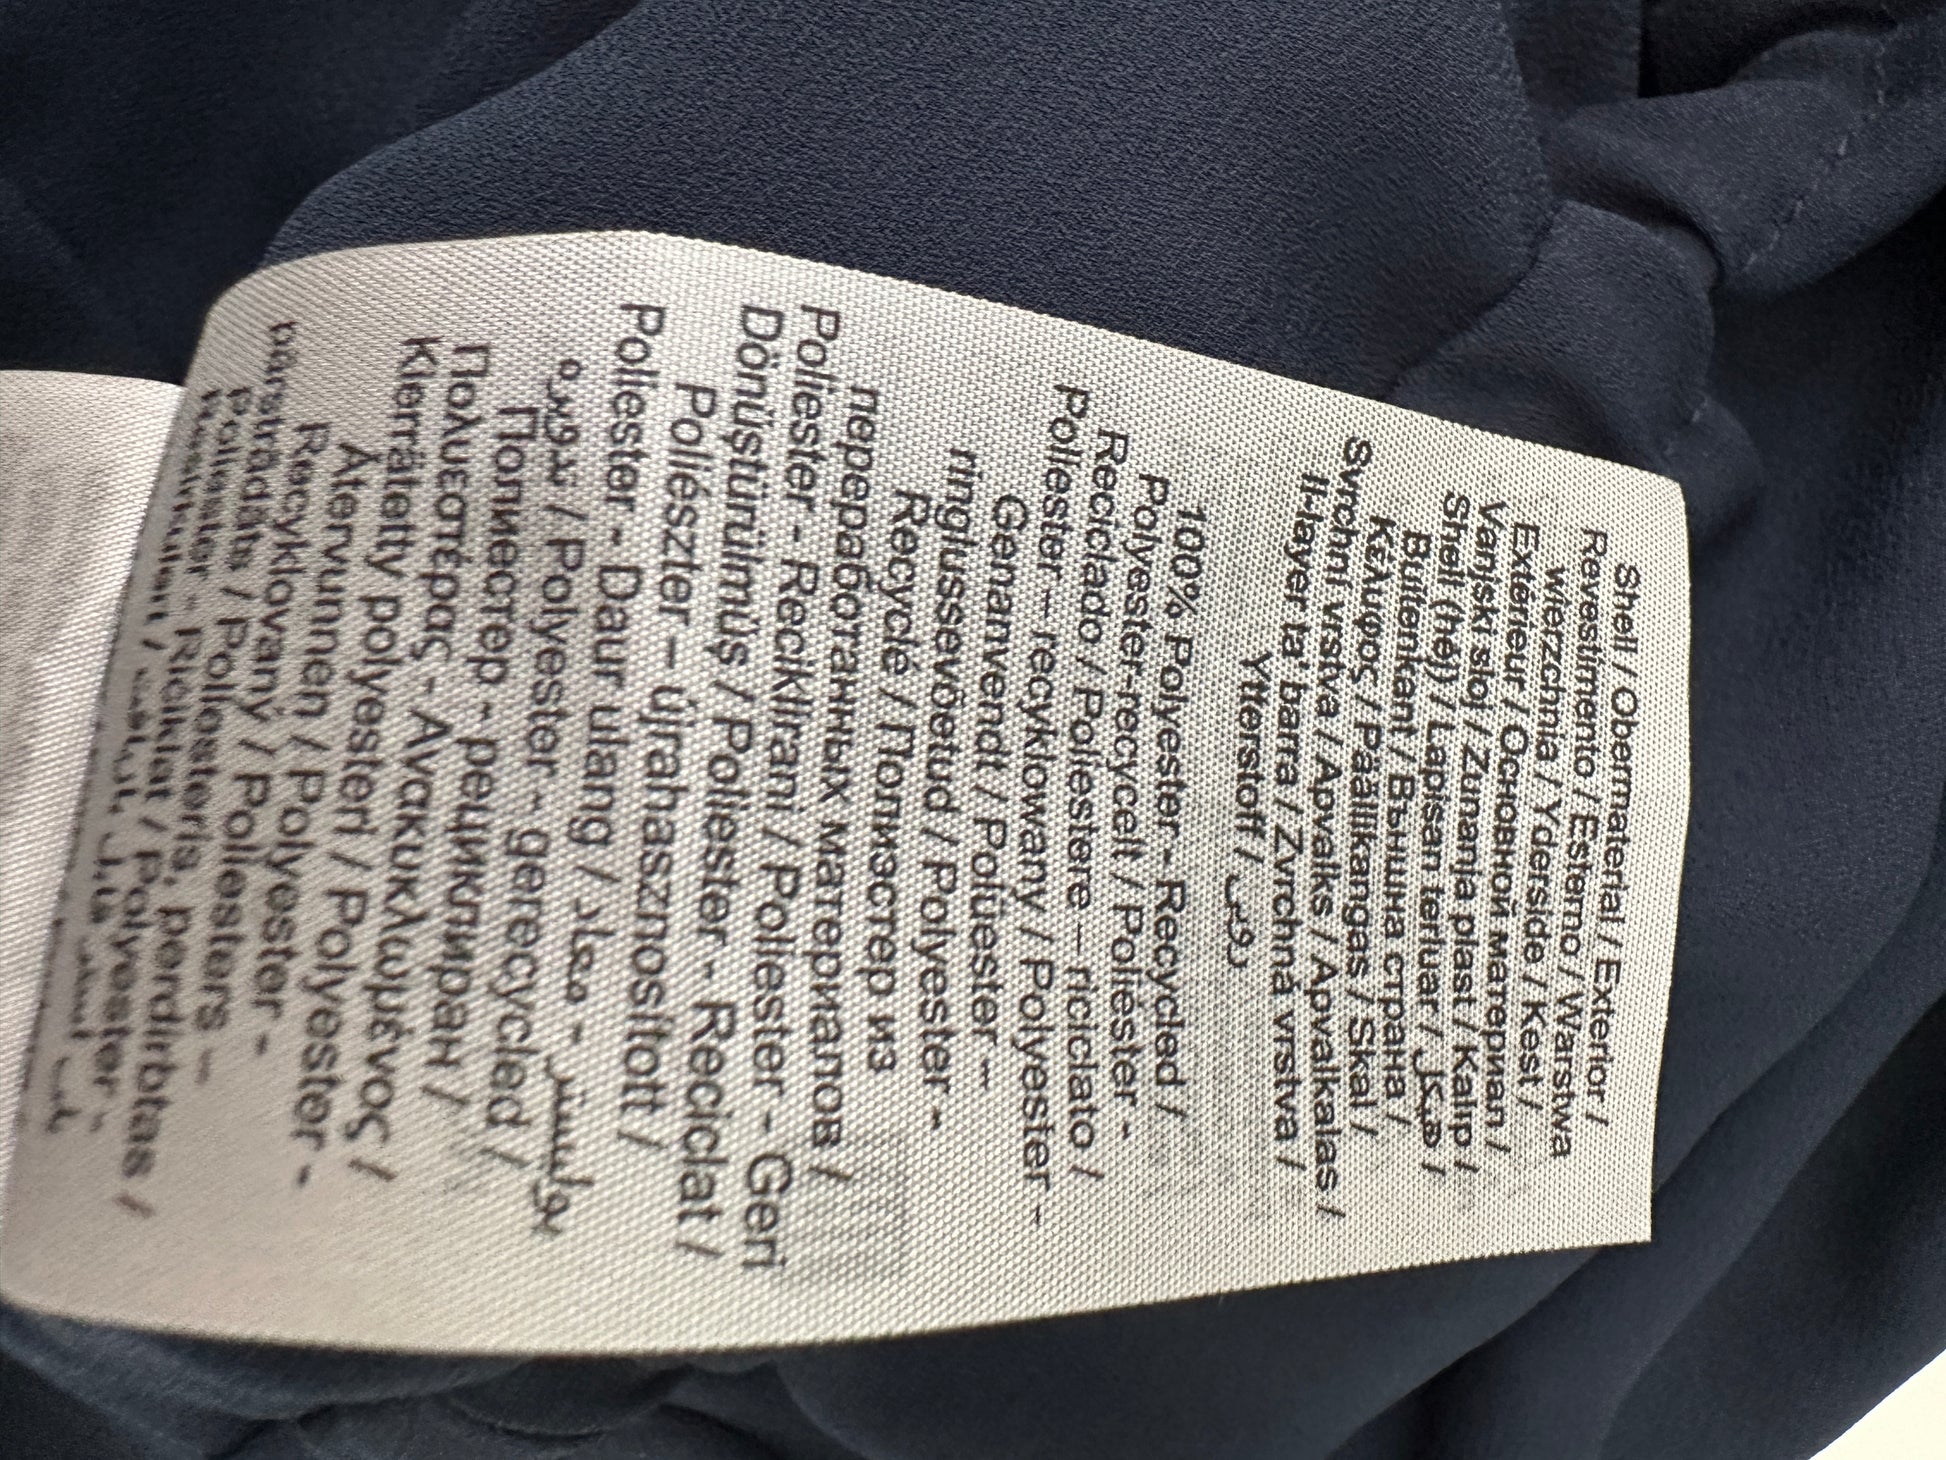 Shell / Obermaterial / Exterior /
Revestimento / Esterno / Warstwa
wierzchnia / Yderside / Kest /
Extérieur / Основной материал /
Vanjski sloj / Zunanja plast / Kalıp /
Shell (héj) / Lapisan terluar / هيكل /
Buitenkant / Външна страна /
Κέλυφος / Päällikangas / Skal /
Svrchní vrstva / Apvalks / Apvalkalas /
Il-layer ta' barra / Zvrchná vrstva /
Ytterstoff /
100% Polyester- Recycled /
Polyester-recycelt / Poliéster-
Reciclado / Poliestere – riciclato /
Poliester – recyklowany / Polyester -
Genanvendt / Polüester –
ringlussevõetud / Polyester-
Recyclé / Полиэстер из
переработанных материалов /
Poliester - Reciklirani / Poliester - Geri
Dönüştürülmüş / Poliester - Reciclat /
Poliészter – újrahasznosított /
Poliester - Daur ulang / معاد - بوليستر
تدويره / Polyester - gerecycled /
Полиестер - рециклиран /
Πολυεστέρας - Ανακυκλωμένος /
Kierrätetty polyesteri / Polyester -
Återvunnen / Polyester -
Recyklovaný / Poliesters -
pārstrādāts / Poliesteris, perdirbtas /
Poliester - Riċiklat / Polyester -